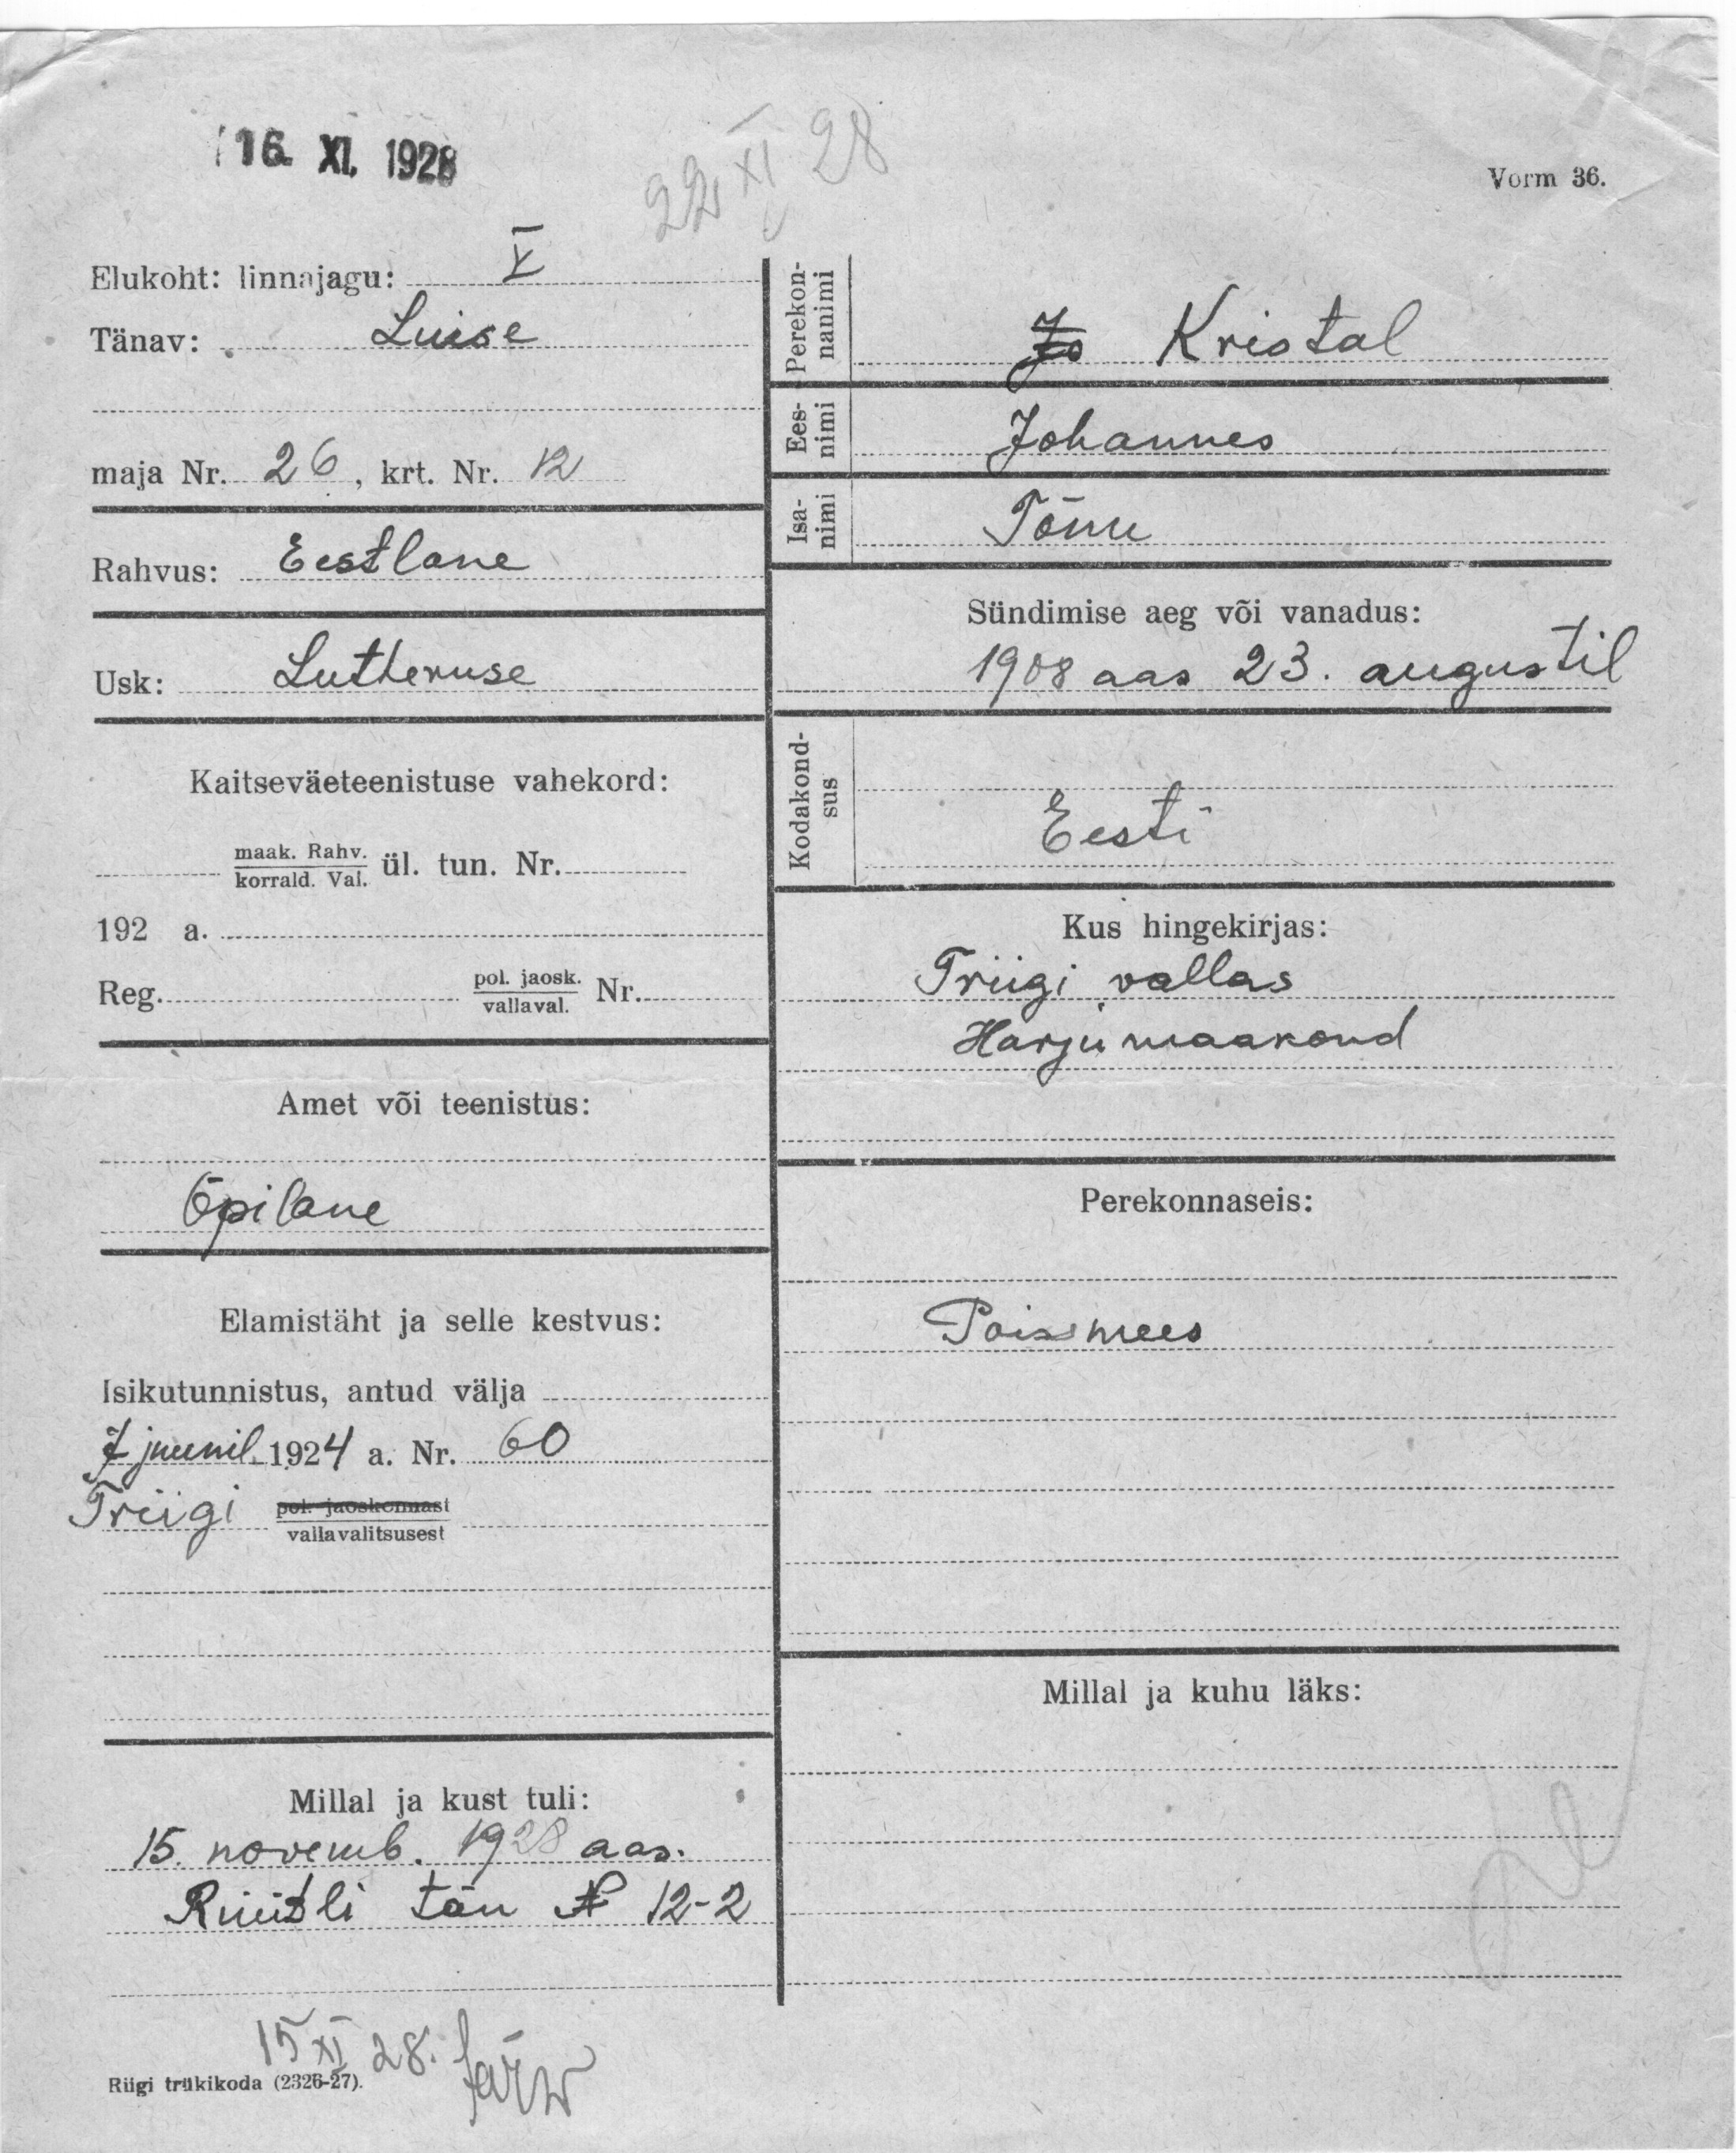 16. XI. 1928
22 XI 28
Vorm 36.
Elukoht: linnajagu: V
Tänav: Luise
maja Nr. 26, krt. Nr. 12
Rahvus: Eestlane
Usk: Lutheruse
Kaitseväeteenistuse vahekord:
maak. Rahv.
korrald. Val. ül. tun. Nr.
192 a.
Reg. pol. jaosk.
vallaval. Nr.
Amet või teenistus:
Õpilane
Elamistäht ja selle kestvus:
Isikutunnistus, antud välja
7 juunil 1924 a. Nr. 60
Triigi pol. jaoskonnast
vallavalitsusest
Millal ja kust tuli:
15. novemb. 1928 aas.
Rüütli tän № 12-2
15 XI 28.
Riigi trükikoda (2326-27).
Perekon-
nanimi
Jo Kristal
Ees-
nimi
Johannes
Isa-
nimi
Tõnu
Sündimise aeg või vanadus:
1908 aas 23. augustil
Kodakond-
sus
Eesti
Kus hingekirjas:
Triigi vallas
Harju maakond
Perekonnaseis:
Poissmees
Millal ja kuhu läks: